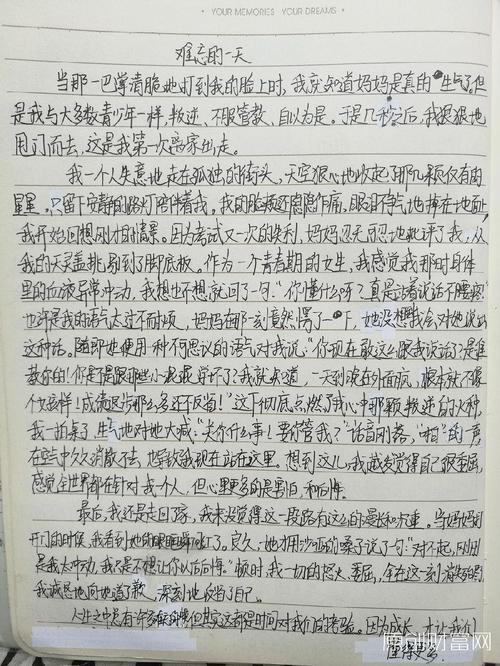 YOUR MEMORIES YOUR DREAMS
难忘的一天
当那一巴掌清脆地打到我的脸上时,我就知道妈妈是真的生气了。但
是我与大多数青少年一样,叛逆、不服管教、自以为是。于是几秒之后,我狠狠地
甩门而去,这是我第一次离家出走。
我一个人失意地走在孤独的街头,天空狠心地收起了那几颗仅有的
星星,只留下安静的路灯陪伴着我。我的脸颊还隐隐作痛,眼泪不争气地掉在地面,
我开始回想刚才的情景。因为考试又一次的失利,妈妈忍无可忍地批评了我,从
我的天灵盖挑剔到了脚底板。作为一个青春期的女生,我感觉我那时身体
里的血液异常冲动,我想也不想就回了一句:“你懂什么呀?真是站着说话不腰疼!”
也许是我的语气太过不耐烦,妈妈在那一刻竟然愣了一下,她没想我会对她说出
这种话。随即她便用一种不可思议的语气对我说:“你现在敢这么跟我说话了?是谁
教你的!你是不是跟那些小混混学坏了?我就知道,一天到晚在外面疯,根本就不像
个女孩样!成绩退步那么多还不反省!”这下彻底点燃了我心中那颗叛逆的火种,
我一拍桌子,生气地对她大喊:“关你什么事!要你管我?”话音刚落,“啪”的一声
在空中久久消散不去,也导致我现在站在这里。想到这儿,我越发觉得自己很委屈,
感觉全世界都在针对我一个人,但心里更多的是害怕和后悔。
最后,我还是走回了家,我从没觉得这一段路有这么的漫长和沉重。当妈妈打
开门的时候,我看到她的眼睛哭红了。良久,她才用沙哑的嗓子说了句:“对不起,刚刚
是我太冲动,我是不想让你以后后悔。”顿时,我一切的怒火、委屈,全在这一刻消失殆尽,
我诚恳地向她道了歉,深刻地反省了自己。
人生之中是有许多
都是时间对我们的考验。因为成长,才让我们
懂得更多。
原创财富网